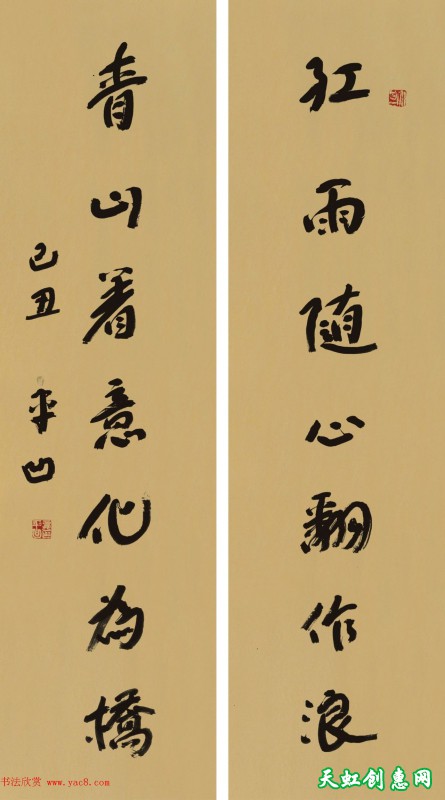 红雨随心翻作浪
青山着意化为橋
己丑 平凹
书法欣赏 www.yac8.com
天虹创惠网